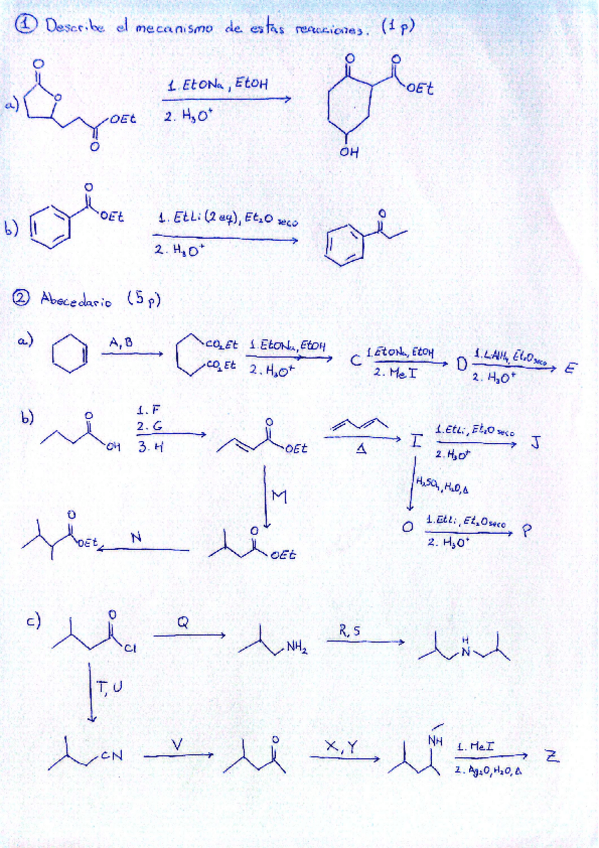 ① Describe el mecanismo de estas reacciones. (1 p)
a) O O OEt O 1. EtONa, EtOH 2. H₃O⁺ O O OEt OH
b) O OEt 1. EtLi (2 eq), Et₂O seco 2. H₃O⁺ O
② Abecedario (5 p)
a) A, B CO₂Et CO₂Et 1. EtONa, EtOH 2. H₃O⁺ C 1. EtONa, EtOH 2. MeI D 1. LiAlH₄, Et₂O seco 2. H₃O⁺ E
b) O OH 1. F 2. G 3. H O OEt Δ I 1. EtLi, Et₂O seco 2. H₃O⁺ J
M H₂SO₄, H₂O, Δ
O OEt N O OEt O 1. EtLi, Et₂O seco 2. H₃O⁺ P
c) O Cl Q NH₂ R, S H N
T, U
CN V O X, Y NH 1. MeI 2. Ag₂O, H₂O, Δ Z